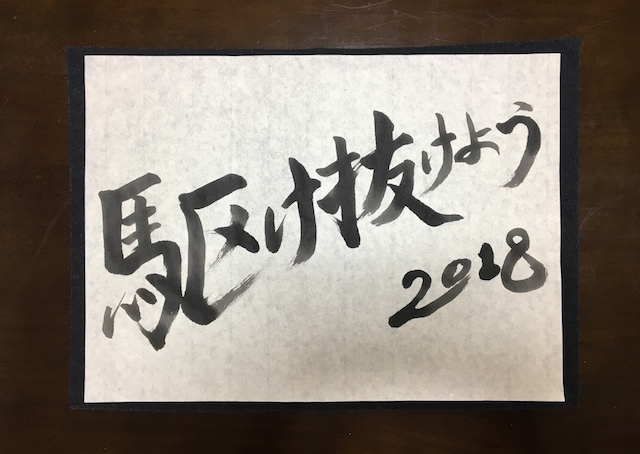 駆け抜けよう
2018